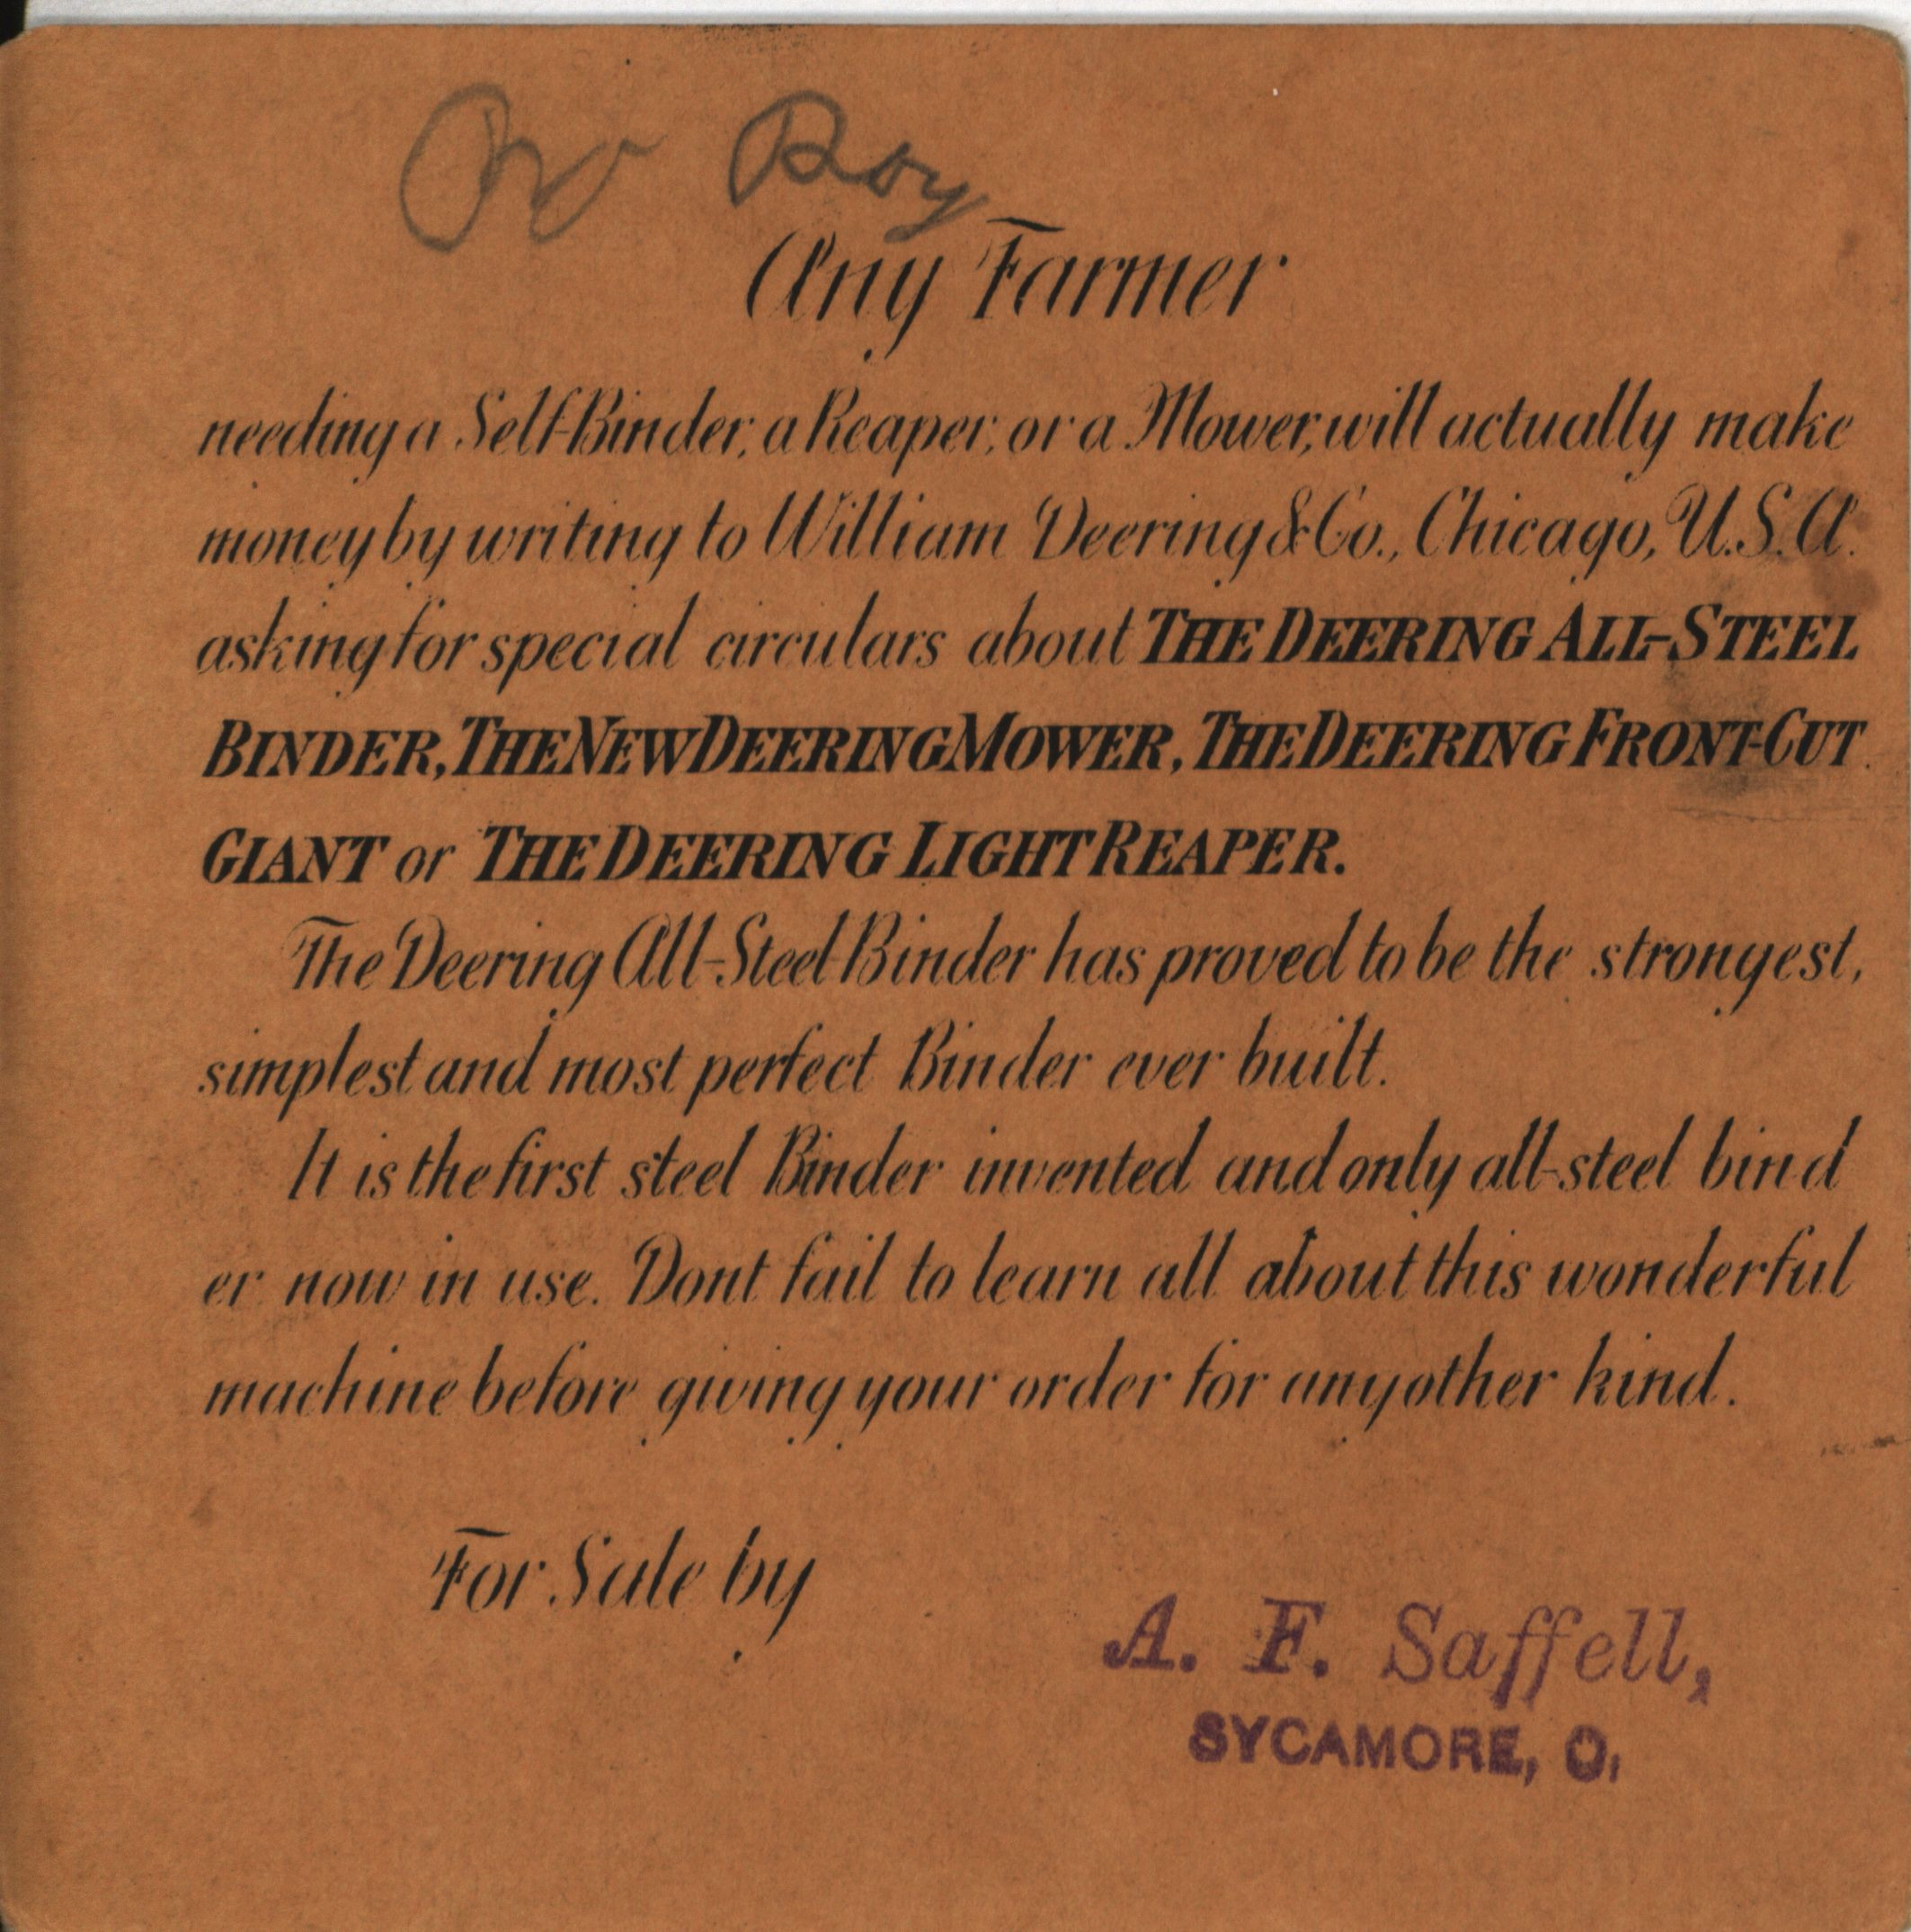 Roy
Any Farmer
needing a Self-Binder, a Reaper, or a Mower, will actually make
money by writing to William Deering & Co., Chicago, U.S.A.
asking for special circulars about THE DEERING ALL-STEEL
BINDER, THE NEW DEERING MOWER, THE DEERING FRONT-CUT
GIANT or THE DEERING LIGHT REAPER.
The Deering All-Steel Binder has proved to be the strongest,
simplest and most perfect Binder ever built.
It is the first steel Binder invented and only all-steel bind
er now in use. Dont fail to learn all about this wonderful
machine before giving your order for any other kind.
For Sale by
A. F. Saffell,
SYCAMORE, O.